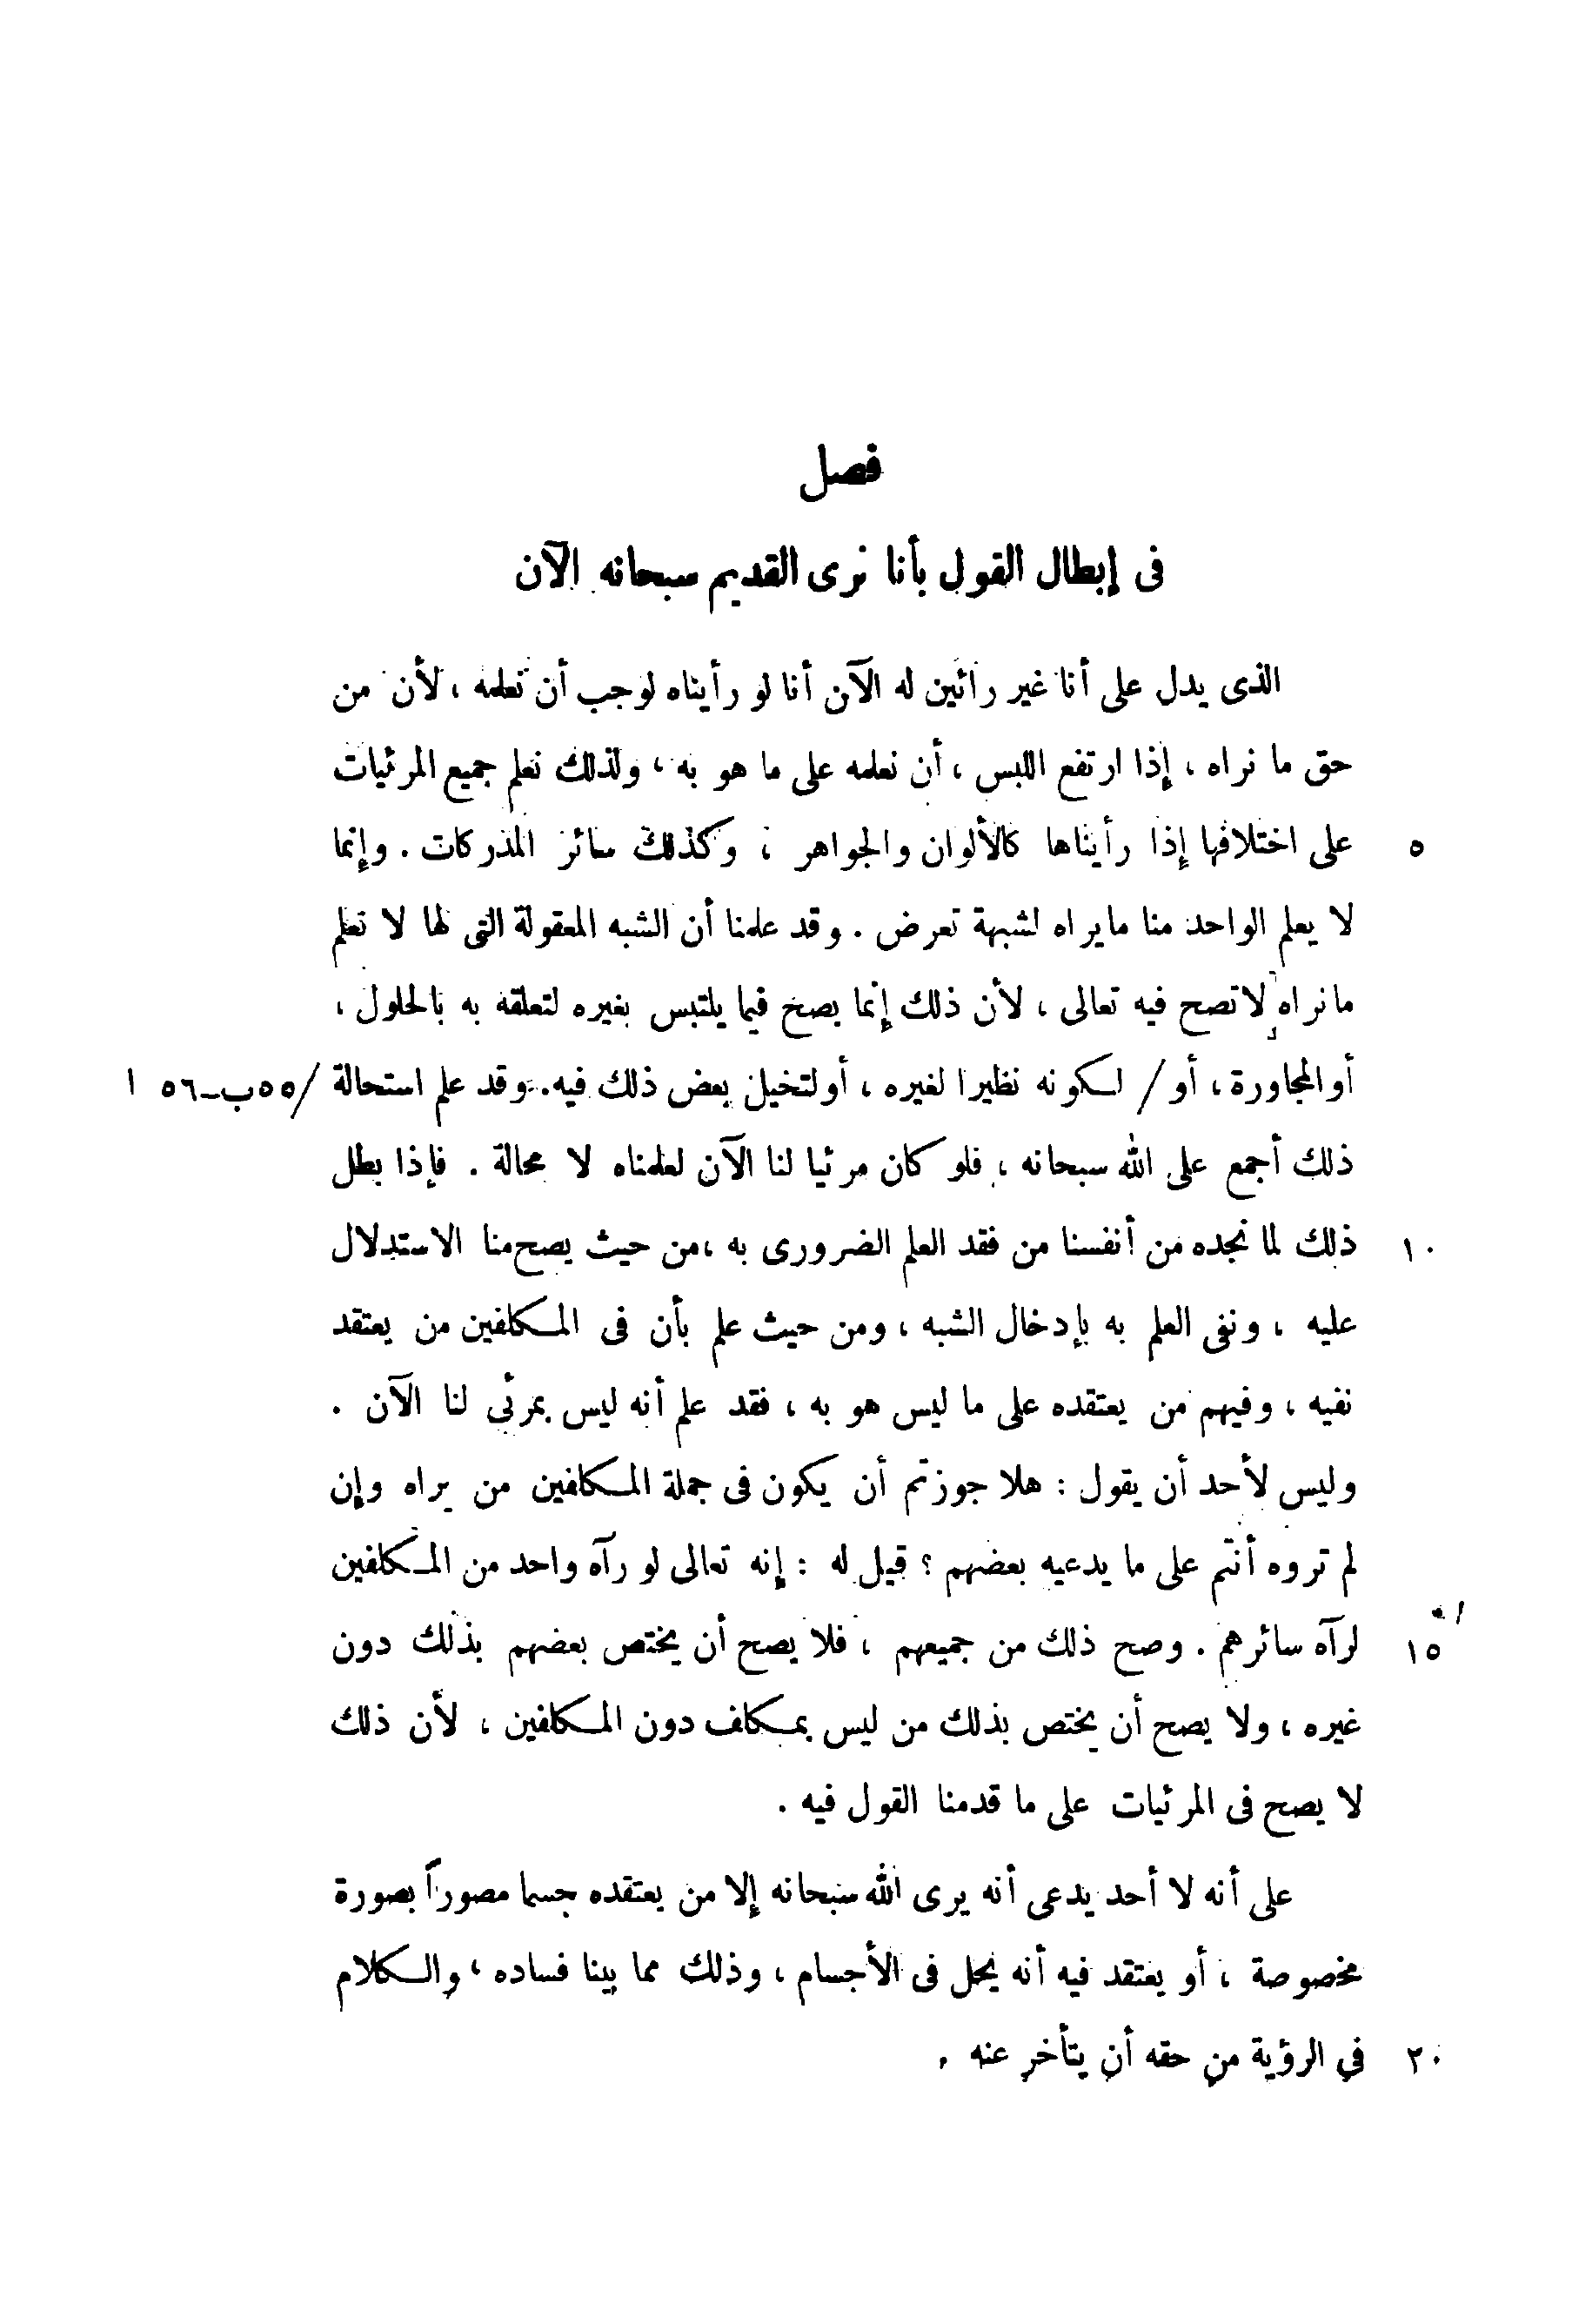 فصل
فى إبطال القول بأنا نرى القديم سبحانه الآن
الذى يدل على أنا غير رائين له الآن أنا لو رأيناه لوجب أن نعلمه ، لأن من
حق ما نراه ، إذا ارتفع اللبس ، أن نعلمه على ما هو به ، ولذلك نعلم جميع المرئيات
على اختلافها إذا رأيناها كالألوان والجواهر ، وكذلك سائر المدركات . وإنما
٥
لا يعلم الواحد منا مايراه لشبهة تعرض . وقد علمنا أن الشبه المعقولة التى لها لا نعلم
مانراه لاتصح فيه تعالى ، لأن ذلك إنما يصح فيما يلتبس بغيره لتعلقه به بالحلول ،
أوالمجاورة ، أو / لكونه نظيرا لغيره ، أولتخيل بعض ذلك فيه . وقد علم استحالة
/٥٥ب-٥٦ ا
ذلك أجمع على الله سبحانه ، فلو كان مرئيا لنا الآن لعلمناه لا محالة . فإذا بطل
ذلك لما نجده من أنفسنا من فقد العلم الضرورى به ،من حيث يصح منا الاستدلال
١٠
عليه ، ونفى العلم به بإدخال الشبه ، ومن حيث علم بأن فى المكلفين من يعتقد
نفيه ، وفيهم من يعتقده على ما ليس هو به ، فقد علم أنه ليس بمرئى لنا الآن .
وليس لأحد أن يقول : هلا جوزتم أن يكون فى جملة المكلفين من يراه وإن
لم تروه أنتم على ما يدعيه بعضهم ؟ قيل له : إنه تعالى لو رآه واحد من المكلفين
لرآه سائرهم . وصح ذلك من جميعهم ، فلا يصح أن يختص بعضهم بذلك دون
١٥
غيره ، ولا يصح أن يختص بذلك من ليس بمكلف دون المكلفين ، لأن ذلك
لا يصح فى المرئيات على ما قدمنا القول فيه .
على أنه لا أحد يدعى أنه يرى الله سبحانه إلا من يعتقده جسما مصوراً بصورة
مخصوصة ، أو يعتقد فيه أنه يحل فى الأجسام ، وذلك مما بينا فساده ، والكلام
فى الرؤية من حقه أن يتأخر عنه .
٢٠